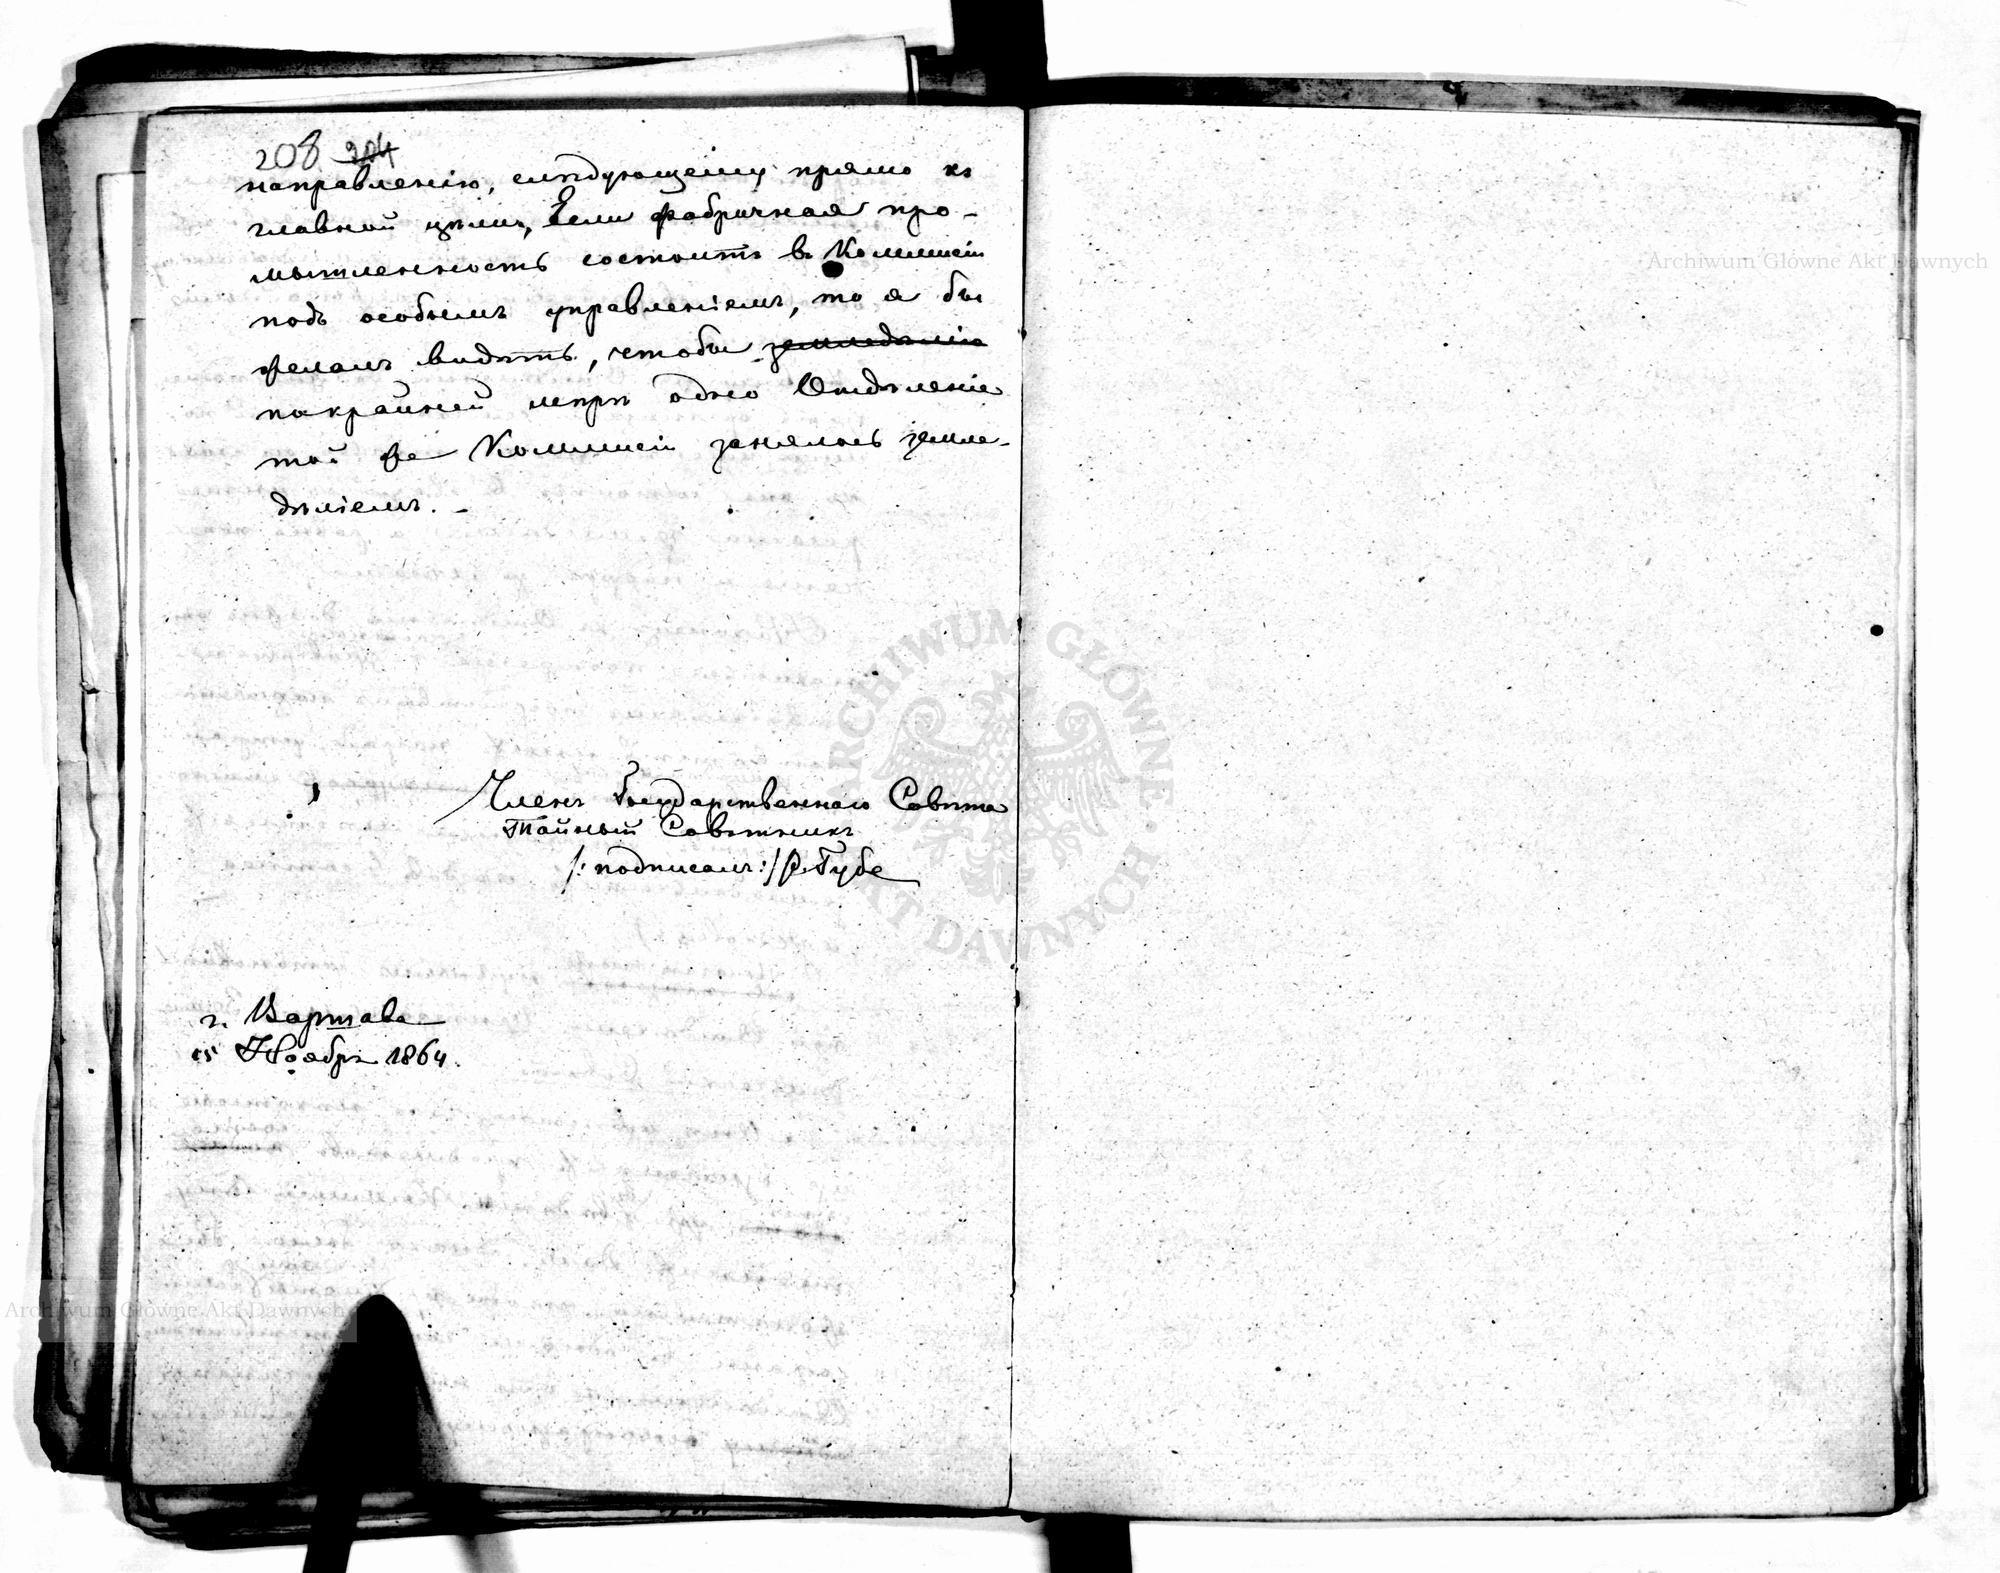 208 204
направленію, слѣдующему прямо къ
главной цѣли, Если фабричная про-
мышленность состоитъ въ Коммисіи
подъ особымъ управленіемъ, то я бы
желалъ видѣть, чтобы земледѣліе
покрайней мѣрѣ одно Отдѣленіе
той же Коммисіи занялось земле-
дѣліемъ. -
Членъ Государственнаго Совѣта
Тайный Совѣтникъ
/: подписалъ :/ Р. Губе
г. Варшава
15 Ноября 1864.
Archiwum Główne Akt Dawnych
ARCHIWUM GŁÓWNE AKT DAWNYCH
Archiwum Główne Akt Dawnych